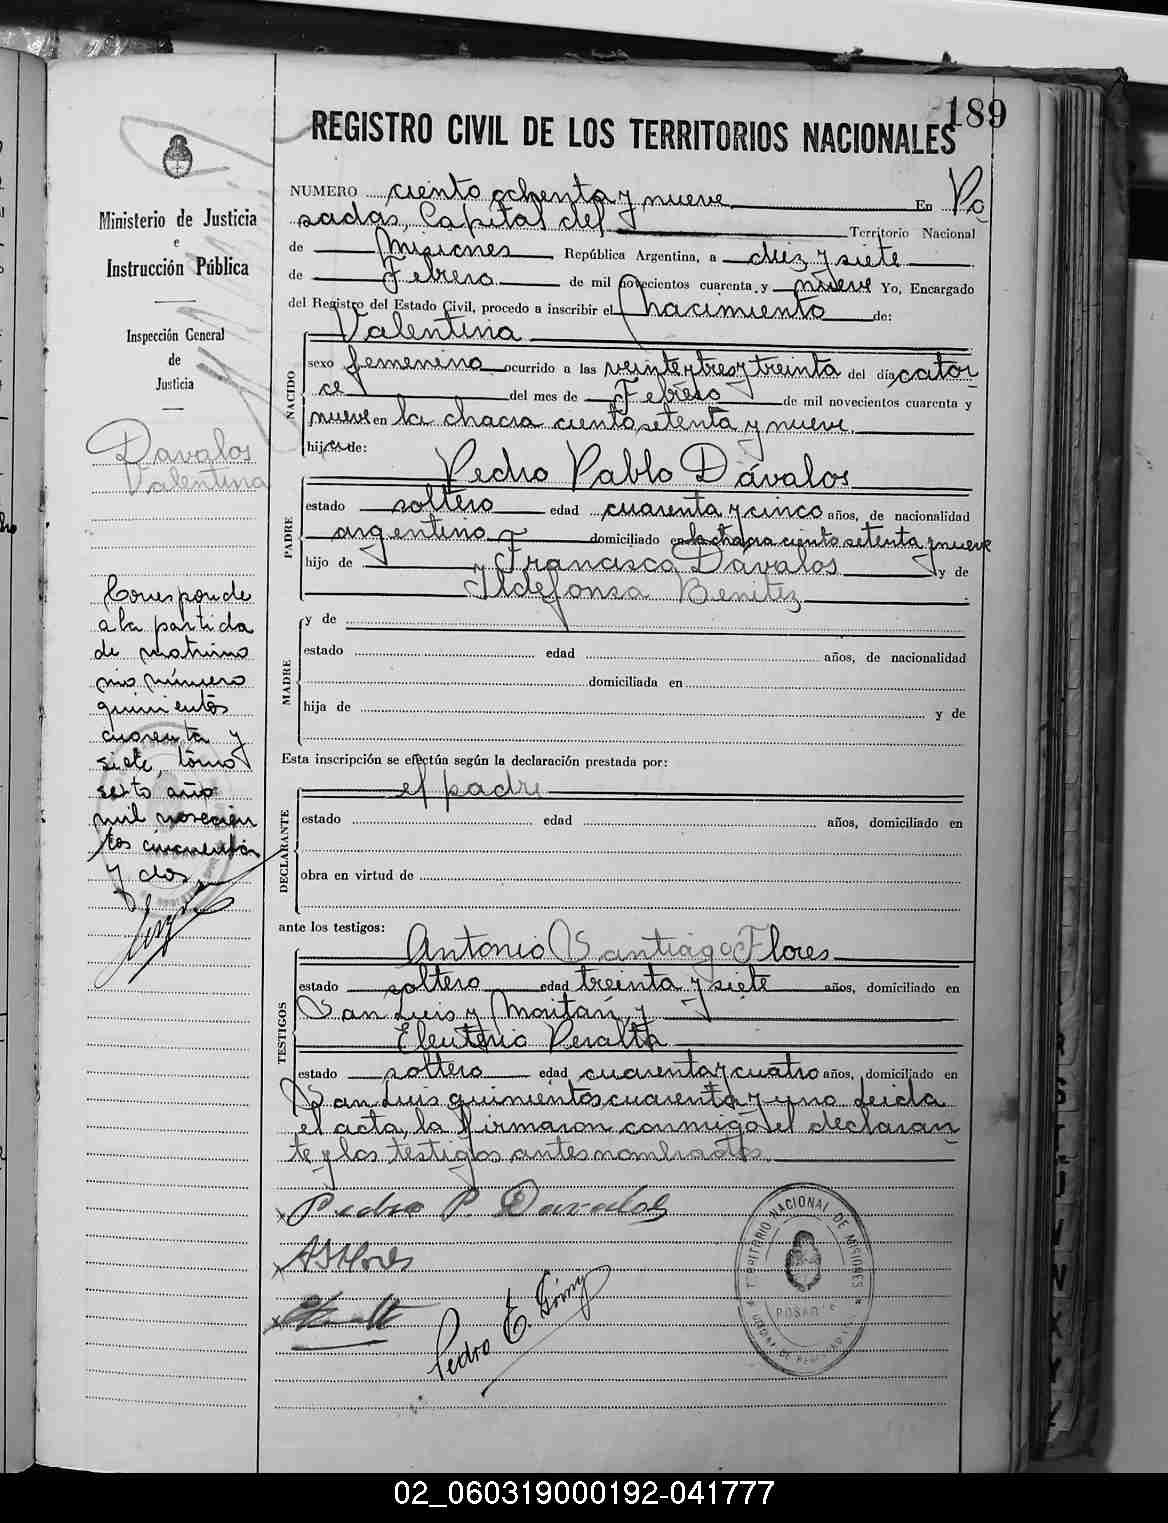 189
REGISTRO CIVIL DE LOS TERRITORIOS NACIONALES
Ministerio de Justicia
e
Instrucción Pública
Inspección General
de
Justicia
Davalos
Valentina
Corresponde
a la partida
de matrimo
nio número
quinientos
cuarenta y
siete, tomo
sexto año
mil novecien
tos cincuenta
y dos
NUMERO ciento ochenta y nueve En Po
sadas, Capital del Territorio Nacional
de Misiones República Argentina, a diez y siete
de Febrero de mil novecientos cuarenta y nueve Yo, Encargado
del Registro del Estado Civil, procedo a inscribir el Nacimiento de:
Valentina
NACIDO
sexo femenino ocurrido a las veinte y tres y treinta del día cator
ce del mes de Febrero de mil novecientos cuarenta y
nueve en la chacra ciento setenta y nueve
hija de:
Pedro Pablo Dávalos
PADRE
estado soltero edad cuarenta y cinco años, de nacionalidad
argentino domiciliado en la chacra ciento setenta y nueve
hijo de Francisco Dávalos y de
Ildefonsa Benitez
MADRE
y de
estado edad años, de nacionalidad
domiciliada en
hija de y de
Esta inscripción se efectúa según la declaración prestada por:
el padre
DECLARANTE
estado edad años, domiciliado en
obra en virtud de
ante los testigos:
Antonio Santiago Flores
TESTIGOS
estado soltero edad treinta y siete años, domiciliado en
San Luis y Moritán, y
Eleuterio Peralta
estado soltero edad cuarenta y cuatro años, domiciliado en
San Luis quinientos cuarenta y uno Leida
el acta, la firmaron conmigo el declaran
te y los testigos antes nombrados.
Pedro P. Davalos
A S Flores
Pedro E Gómez
TERRITORIO NACIONAL DE MISIONES
POSADAS
02_060319000192-041777